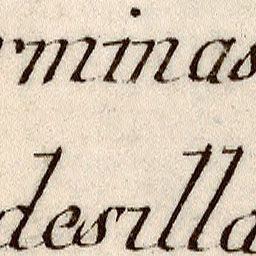 rminas
desilla